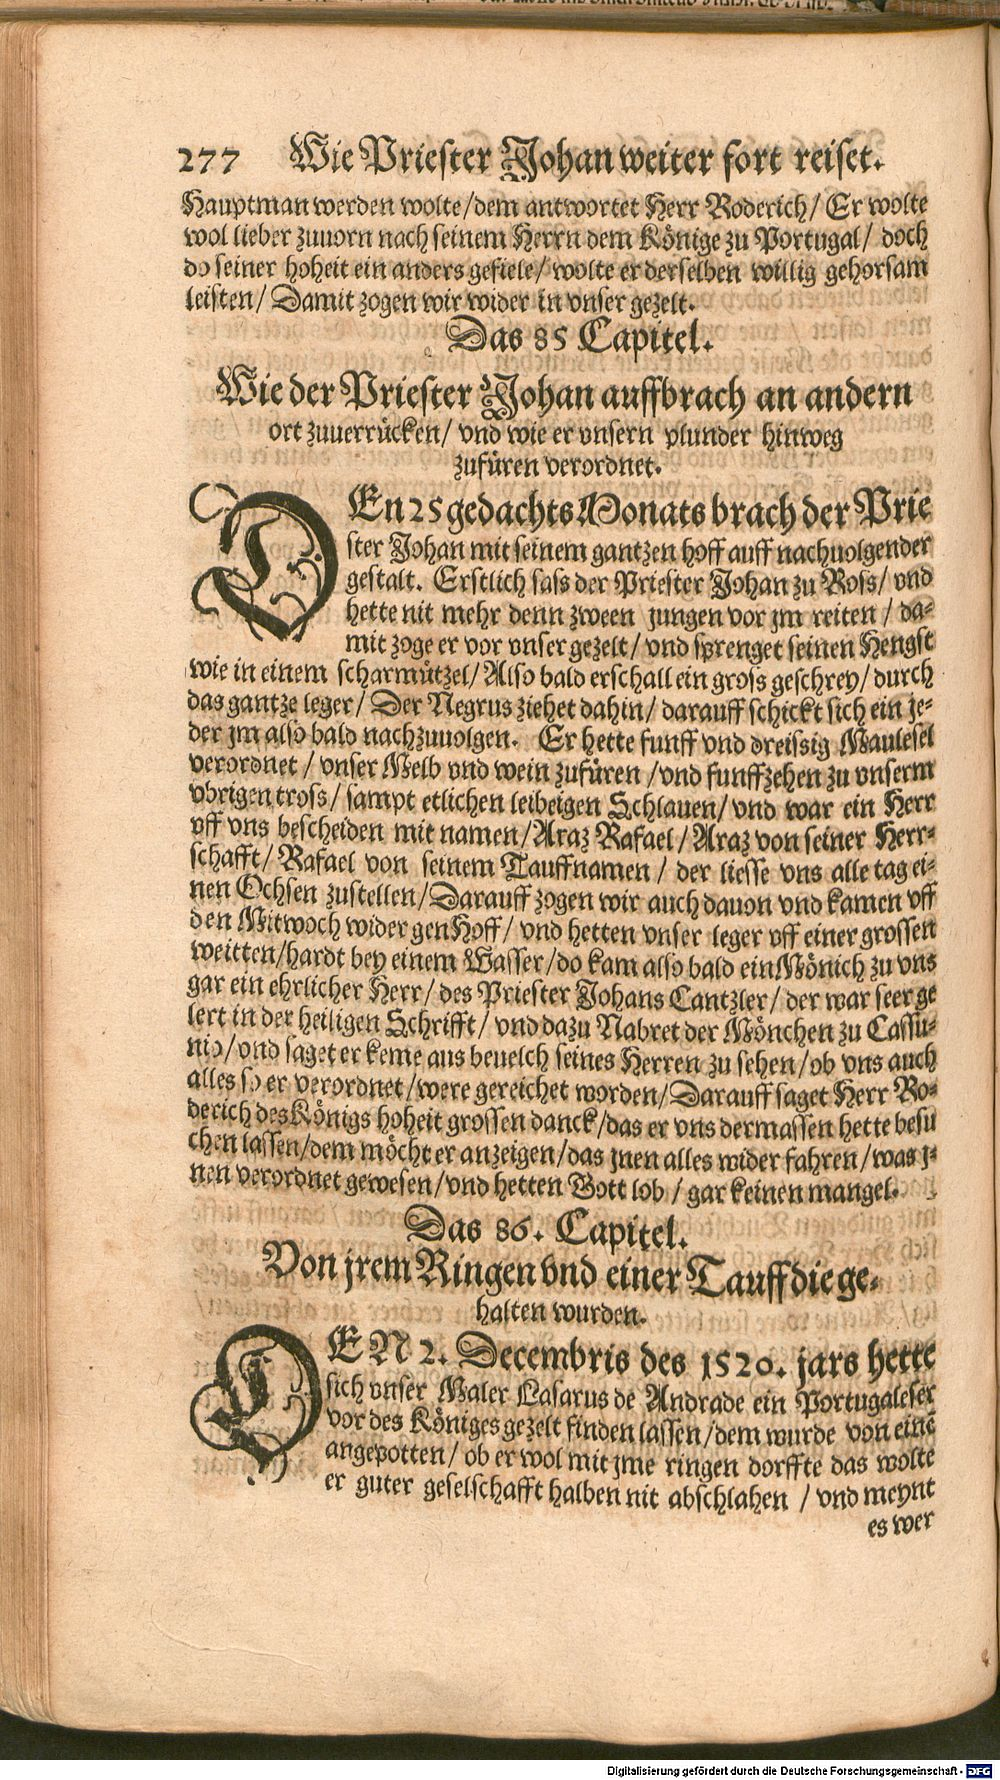 277 Wie Priester Johan weiter fort reiset.
Hauptman werden wolte/dem antwortet Herr Roderich/ Er wolte
wol lieber zuuorn nach seinem Herrn dem Könige zu Portugal/ doch
do seiner hoheit ein anders gefiele/ wolte er derselben willig gehorsam
leisten/ Damit zogen wir wider in vnser gezelt.
Das 85 Capitel.
Wie der Priester Johan auffbrach an andern
ort zuuerrücken/ vnd wie er vnsern plunder hinweg
zufüren verordnet.
DEn 25 gedachts Monats brach der Prie
ster Johan mit seinem gantzen hoff auff nachuolgender
gestalt. Erstlich sass der Priester Johan zu Ross/ vnd
hette nit mehr denn zween jungen vor jm reiten / da-
mit zoge er vor vnser gezelt/ vnd sprenget seinen Hengst
wie in einem scharmützel/ Also bald erschall ein gross geschrey/ durch
das gantze leger/ Der Negrus ziehet dahin/ darauff schickt sich ein je-
der jm also bald nachzuuolgen. Er hette funff vnd dreissig Maulesel
verordnet / vnser Melb vnd wein zufüren /vnd funffzehen zu vnserm
vbrigen tross/ sampt etlichen leibeigen Schlauen/ vnd war ein Herr
vff vns bescheiden mit namen/Araz Rafael/ Araz von seiner Herr-
schafft/ Rafael von seinem Tauffnamen / der liesse vns alle tag ei-
nen Ochsen zustellen/Darauff zogen wir auch dauon vnd kamen vff
den Mitwoch wider gen Hoff/ vnd hetten vnser leger vff einer grossen
weitten/hardt bey einem Wasser/do kam also bald ein Mönich zu vns
gar ein ehrlicher Herr/ des Priester Johans Cantzler/ der war seer ge
lert in der heiligen Schrifft/ vnd dazu Nabret der Mönchen zu Cassu-
nio/vnd saget er keme aus beuelch seines Herren zu sehen/ob vns auch
alles so er verordnet/were gereichet worden/Darauff saget Herr Ro-
derich des Königs hoheit grossen danck/das er vns dermassen hette besu
chen lassen/dem möcht er anzeigen/das jnen alles wider fahren/was j-
nen verordnet gewesen/vnd hetten Gott lob / gar keinen mangel.
Das 86. Capitel.
Von jrem Ringen vnd einer Tauff die ge-
halten wurden.
DEN 2. Decembris des 1520. jars hette
sich vnser Maler Lasarus de Andrade ein Portugaleser
vor des Königes gezelt finden lassen/dem wurde von einē
angepotten/ ob er wol mit jme ringen dorffte das wolte
er guter geselschafft halben nit abschlahen / vnd meynt
es wer
Digitalisierung gefördert durch die Deutsche Forschungsgemeinschaft - DFG